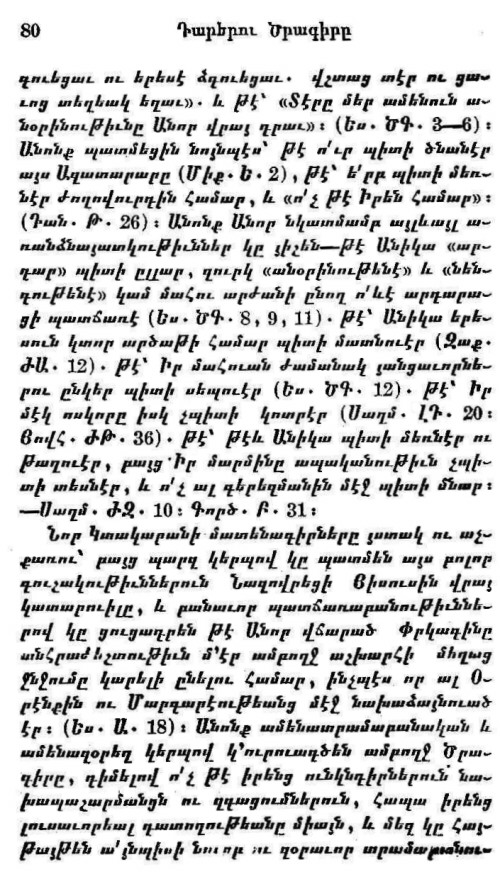 80 Դարերու Ծրագիրը
զուեցաւ ու երեսէ ձգուեցաւ. վշտաց տէր ու ցա-
ւոց տեղեակ եղաւ». և թէ՝ «Տէրը մեր ամենուն ա-
նօրինութիւնը Անոր վրայ դրաւ»: (Ես. ԾԳ. 3—6):
Անոնք պատմեցին նոյնպէս՝ թէ ո՛ւր պիտի ծնանէր
այս Ազատարարը (Միք. Ե. 2), թէ՝ ե՛րբ պիտի մեռ-
նէր ժողովուրդին համար, և «ո՛չ թէ Իրեն համար»:
(Դան. Թ. 26): Անոնք Անոր նկատմամբ այլևայլ ա-
ռանձնայատկութիւններ կը յիշեն—թէ Անիկա «ար-
դար» պիտի ըլլար, զուրկ «անօրինութենէ» և «նեն-
գութենէ» կամ մահու արժանի ընող ո՛ևէ արդարա-
ցի պատճառէ (Ես. ԾԳ. 8, 9, 11). թէ՝ Անիկա երե-
սուն կտոր արծաթի համար պիտի մատնուէր (Զաք.
ԺԱ. 12). թէ՝ Իր մահուան ժամանակ յանցաւորնե-
րու ընկեր պիտի սեպուէր (Ես. ԾԳ. 12). թէ՝ Իր
մէկ ոսկորը իսկ չպիտի կոտրէր (Սաղմ. ԼԴ. 20:
Յովհ. ԺԹ. 36). թէ՝ թէև Անիկա պիտի մեռնէր ու
թաղուէր, բայց Իր մարմինը ապականութիւն չպի-
տի տեսնէր, և ո՛չ ալ գերեզմանին մէջ պիտի մնար:
—Սաղմ. ԺԶ. 10: Գործ. Բ. 31:
Նոր Կտակարանի մատենագիրները յստակ ու աչ-
քառու՝ բայց պարզ կերպով կը պատմեն այս բոլոր
գուշակութիւններուն Նազովրեցի Յիսուսին վրայ
կատարուիլը, և բանաւոր պատճառաբանութիւննե-
րով կը ցուցադրեն թէ Անոր վճարած Փրկագինը
անհրաժեշտութիւն մ՚էր ամբողջ աշխարհի մեղաց
ջնջումը կարելի ընելու համար, ինչպէս որ ալ Օ-
րէնքին ու Մարգարէութեանց մէջ նախաձայնուած
էր: (Ես. Ա. 18): Անոնք ամենատրամաբանական և
ամենազօրեղ կերպով կ՚ուրուագծեն ամբողջ Ծրա-
գիրը, դիմելով ո՛չ թէ իրենց ունկնդիրներուն նա-
խապաշարմանցն ու զգացումներուն, հապա իրենց
լուսաւորեալ դատողութեանը միայն, և մեզ կը հայ-
թայթեն ա՛յնպիսի նուրբ ու զօրաւոր տրամաբանու-